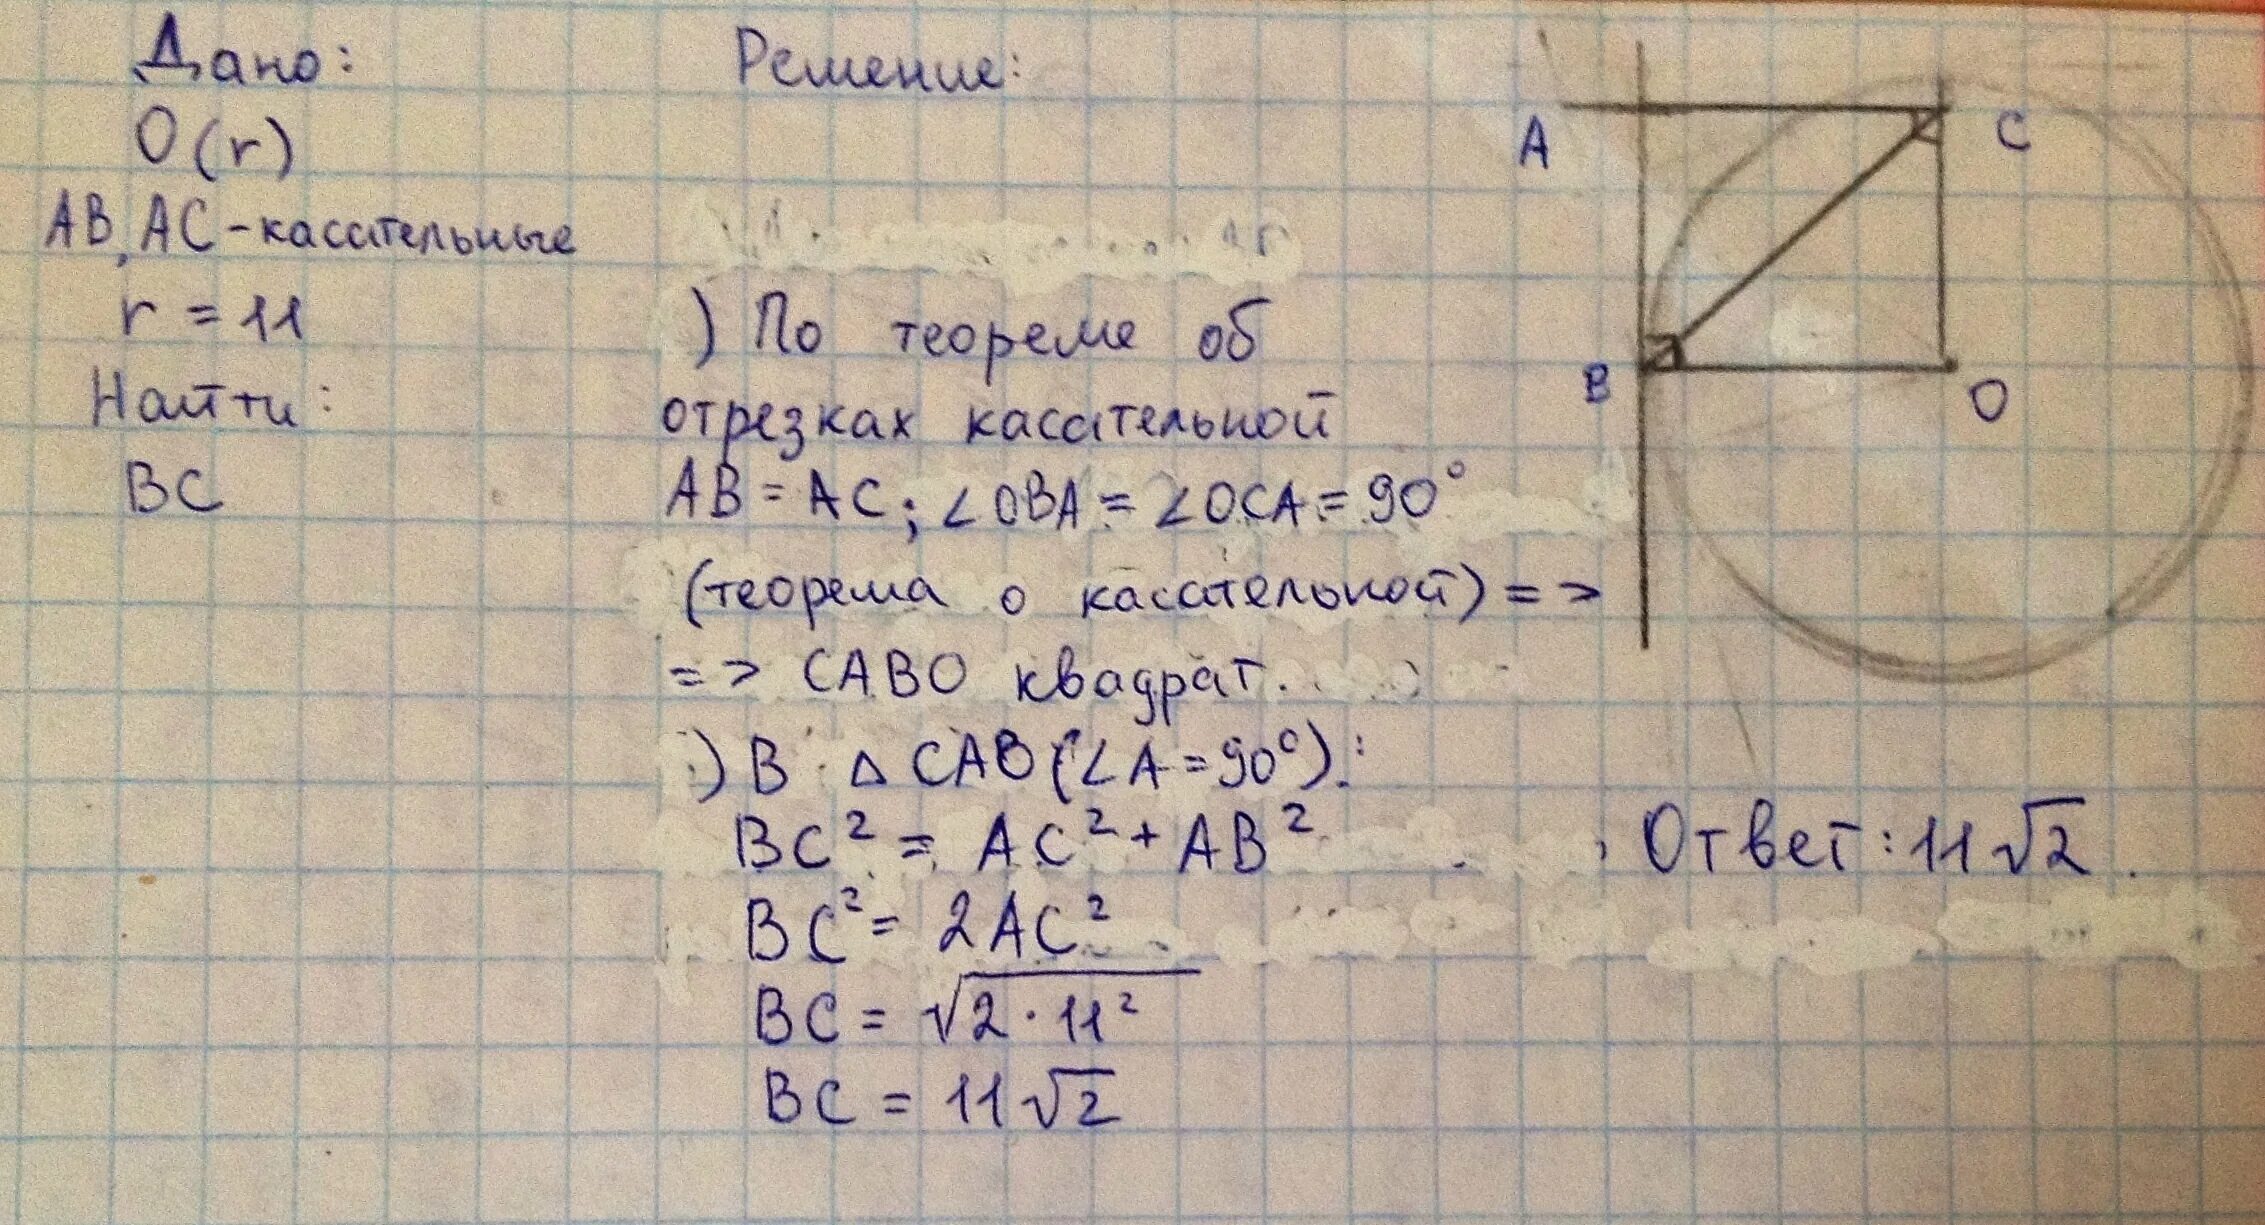 Дано:
O(r)
AB, AC - касательные
r = 11
Найти:
BC
Решение:
) По теореме об
отрезках касательной
AB = AC; ∠OBA = ∠OCA = 90°
(теорема о касательной) =>
=> CABO квадрат.
) В △ CAB (∠A = 90°):
BC² = AC² + AB²
BC² = 2AC²
BC = √2·11²
BC = 11√2
Ответ: 11√2.
A
C
B
O